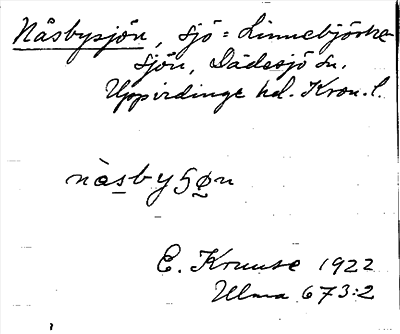 Näsbysjön, sjö = Linnebjörke-
sjön, Dädesjö sn.
Uppvidinge hd. Kron. l.
nàsbyʂøn
E. Kruuse 1922
Ulma 673:2